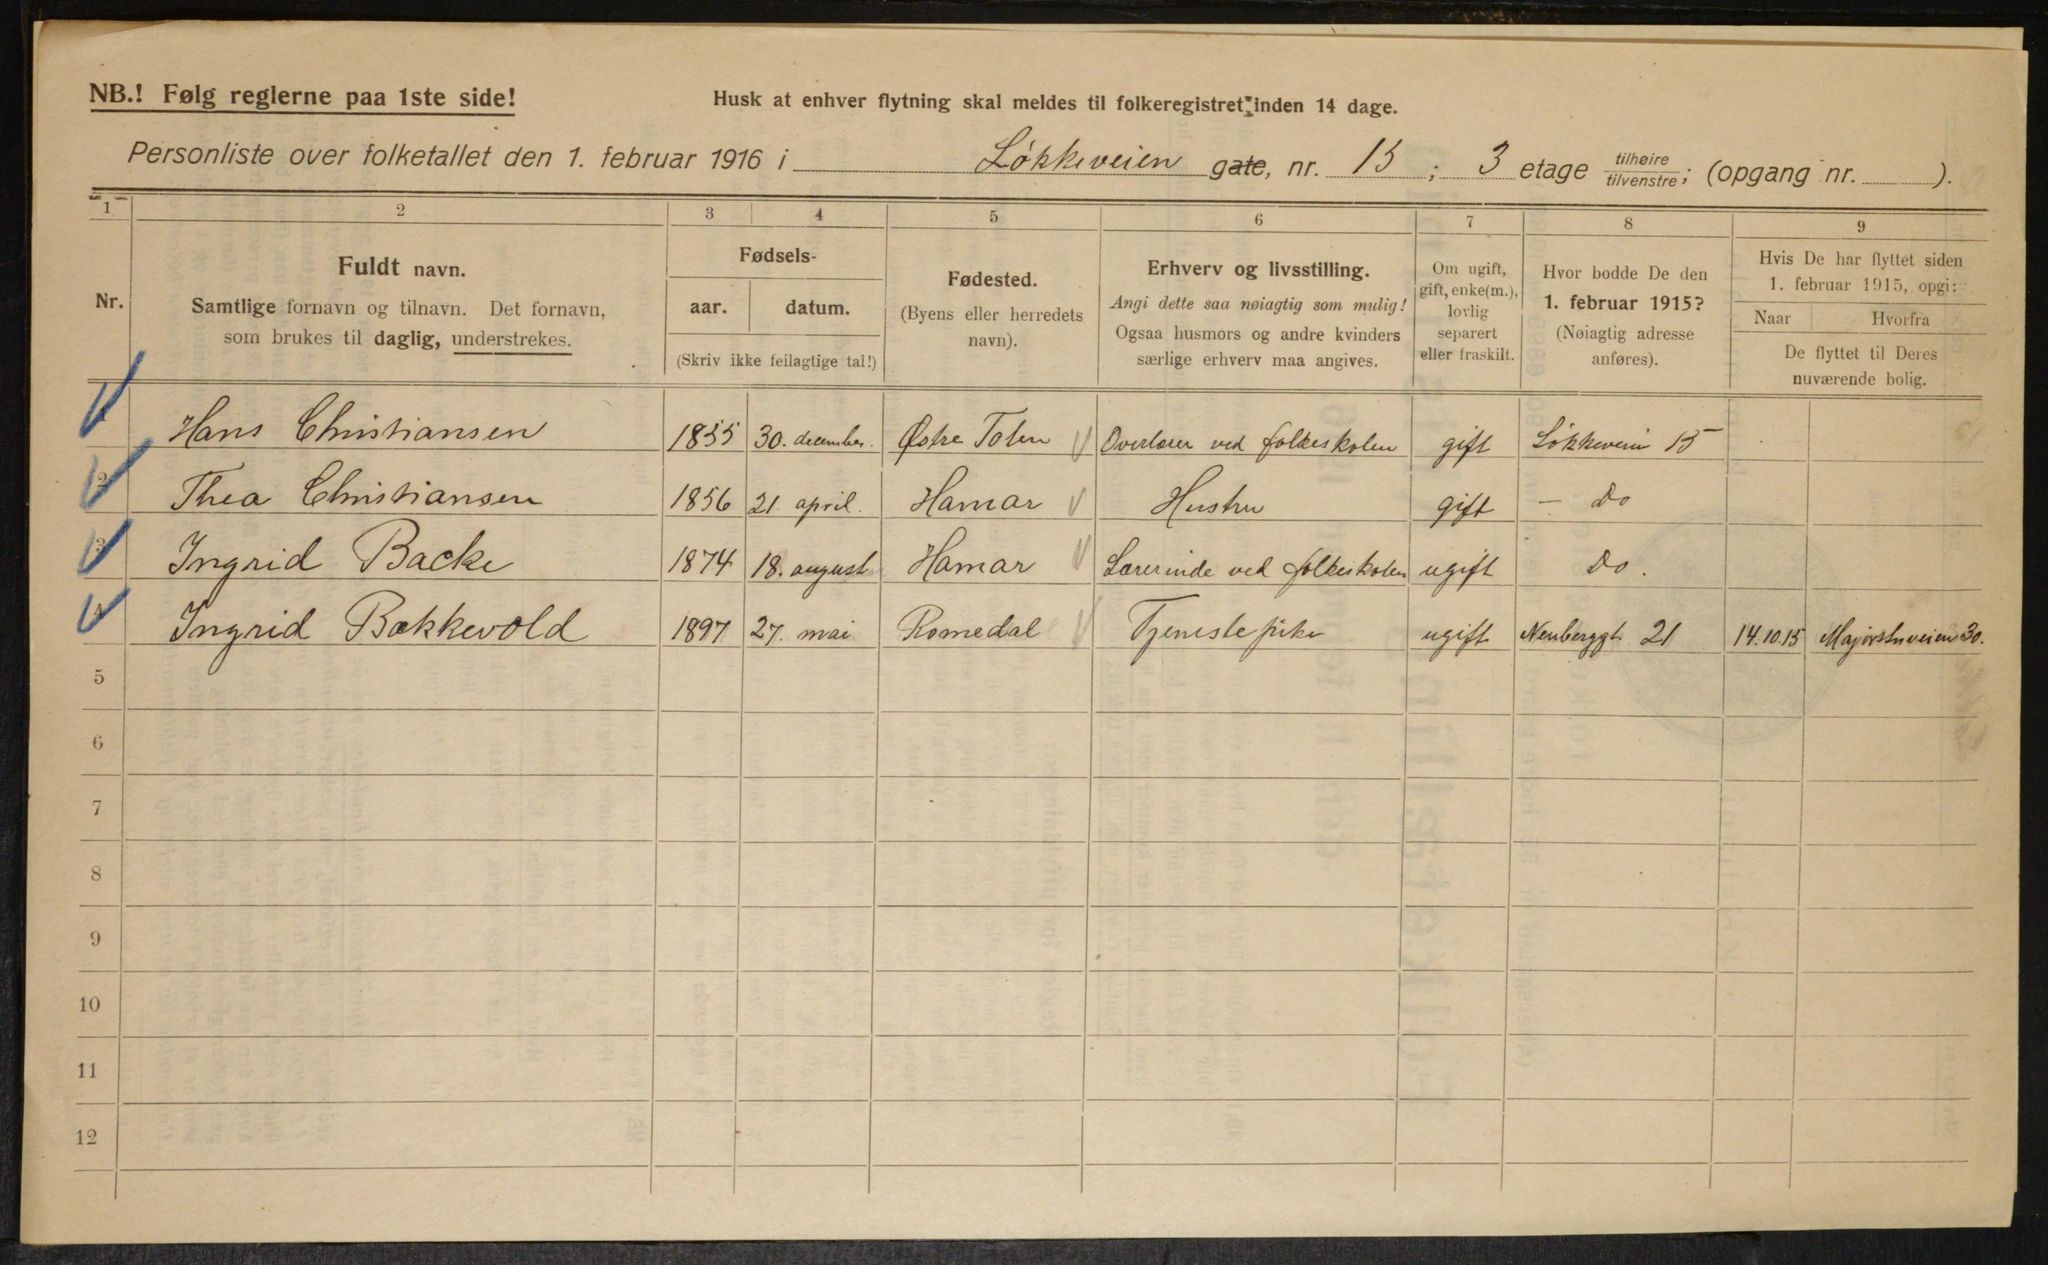 NB.! Følg reglerne paa 1ste side!
Husk at enhver flytning skal meldes til folkeregistret inden 14 dage.
Personliste over folketallet den 1. februar 1916 i Løkkeveien gate, nr. 15; 3 etage tilhøire/tilvenstre; (opgang nr. ).
1 2 3 4 5 6 7 8 9
Nr.
Fuldt navn.
Samtlige fornavn og tilnavn. Det fornavn,
som brukes til daglig, understrekes.
Fødsels-
aar. datum.
(Skriv ikke feilagtige tal!)
Fødested.
(Byens eller herredets
navn).
Erhverv og livsstilling.
Angi dette saa nøiagtig som mulig!
Ogsaa husmors og andre kvinders
særlige erhverv maa angives.
Om ugift,
gift, enke(m.),
lovlig
separert
eller fraskilt.
Hvor bodde De den
1. februar 1915?
(Nøiagtig adresse
anføres).
Hvis De har flyttet siden
1. februar 1915, opgi:
Naar Hvorfra
De flyttet til Deres
nuværende bolig.
1 Hans Christiansen 1855 30. december. Østre Toten Overlærer ved folkeskolen gift Løkkeveien 15
2 Thea Christiansen 1856 21. april. Hamar Hustru gift – Do
3 Ingrid Backe 1874 18. august Hamar Lærerinde ved folkeskolen ugift Do.
4 Ingrid Bakkevold 1897 27. mai Romedal Tjenestepike ugift Neubergt. 21 14.10.15 Majorstuveien 30.
5
6
7
8
9
10
11
12